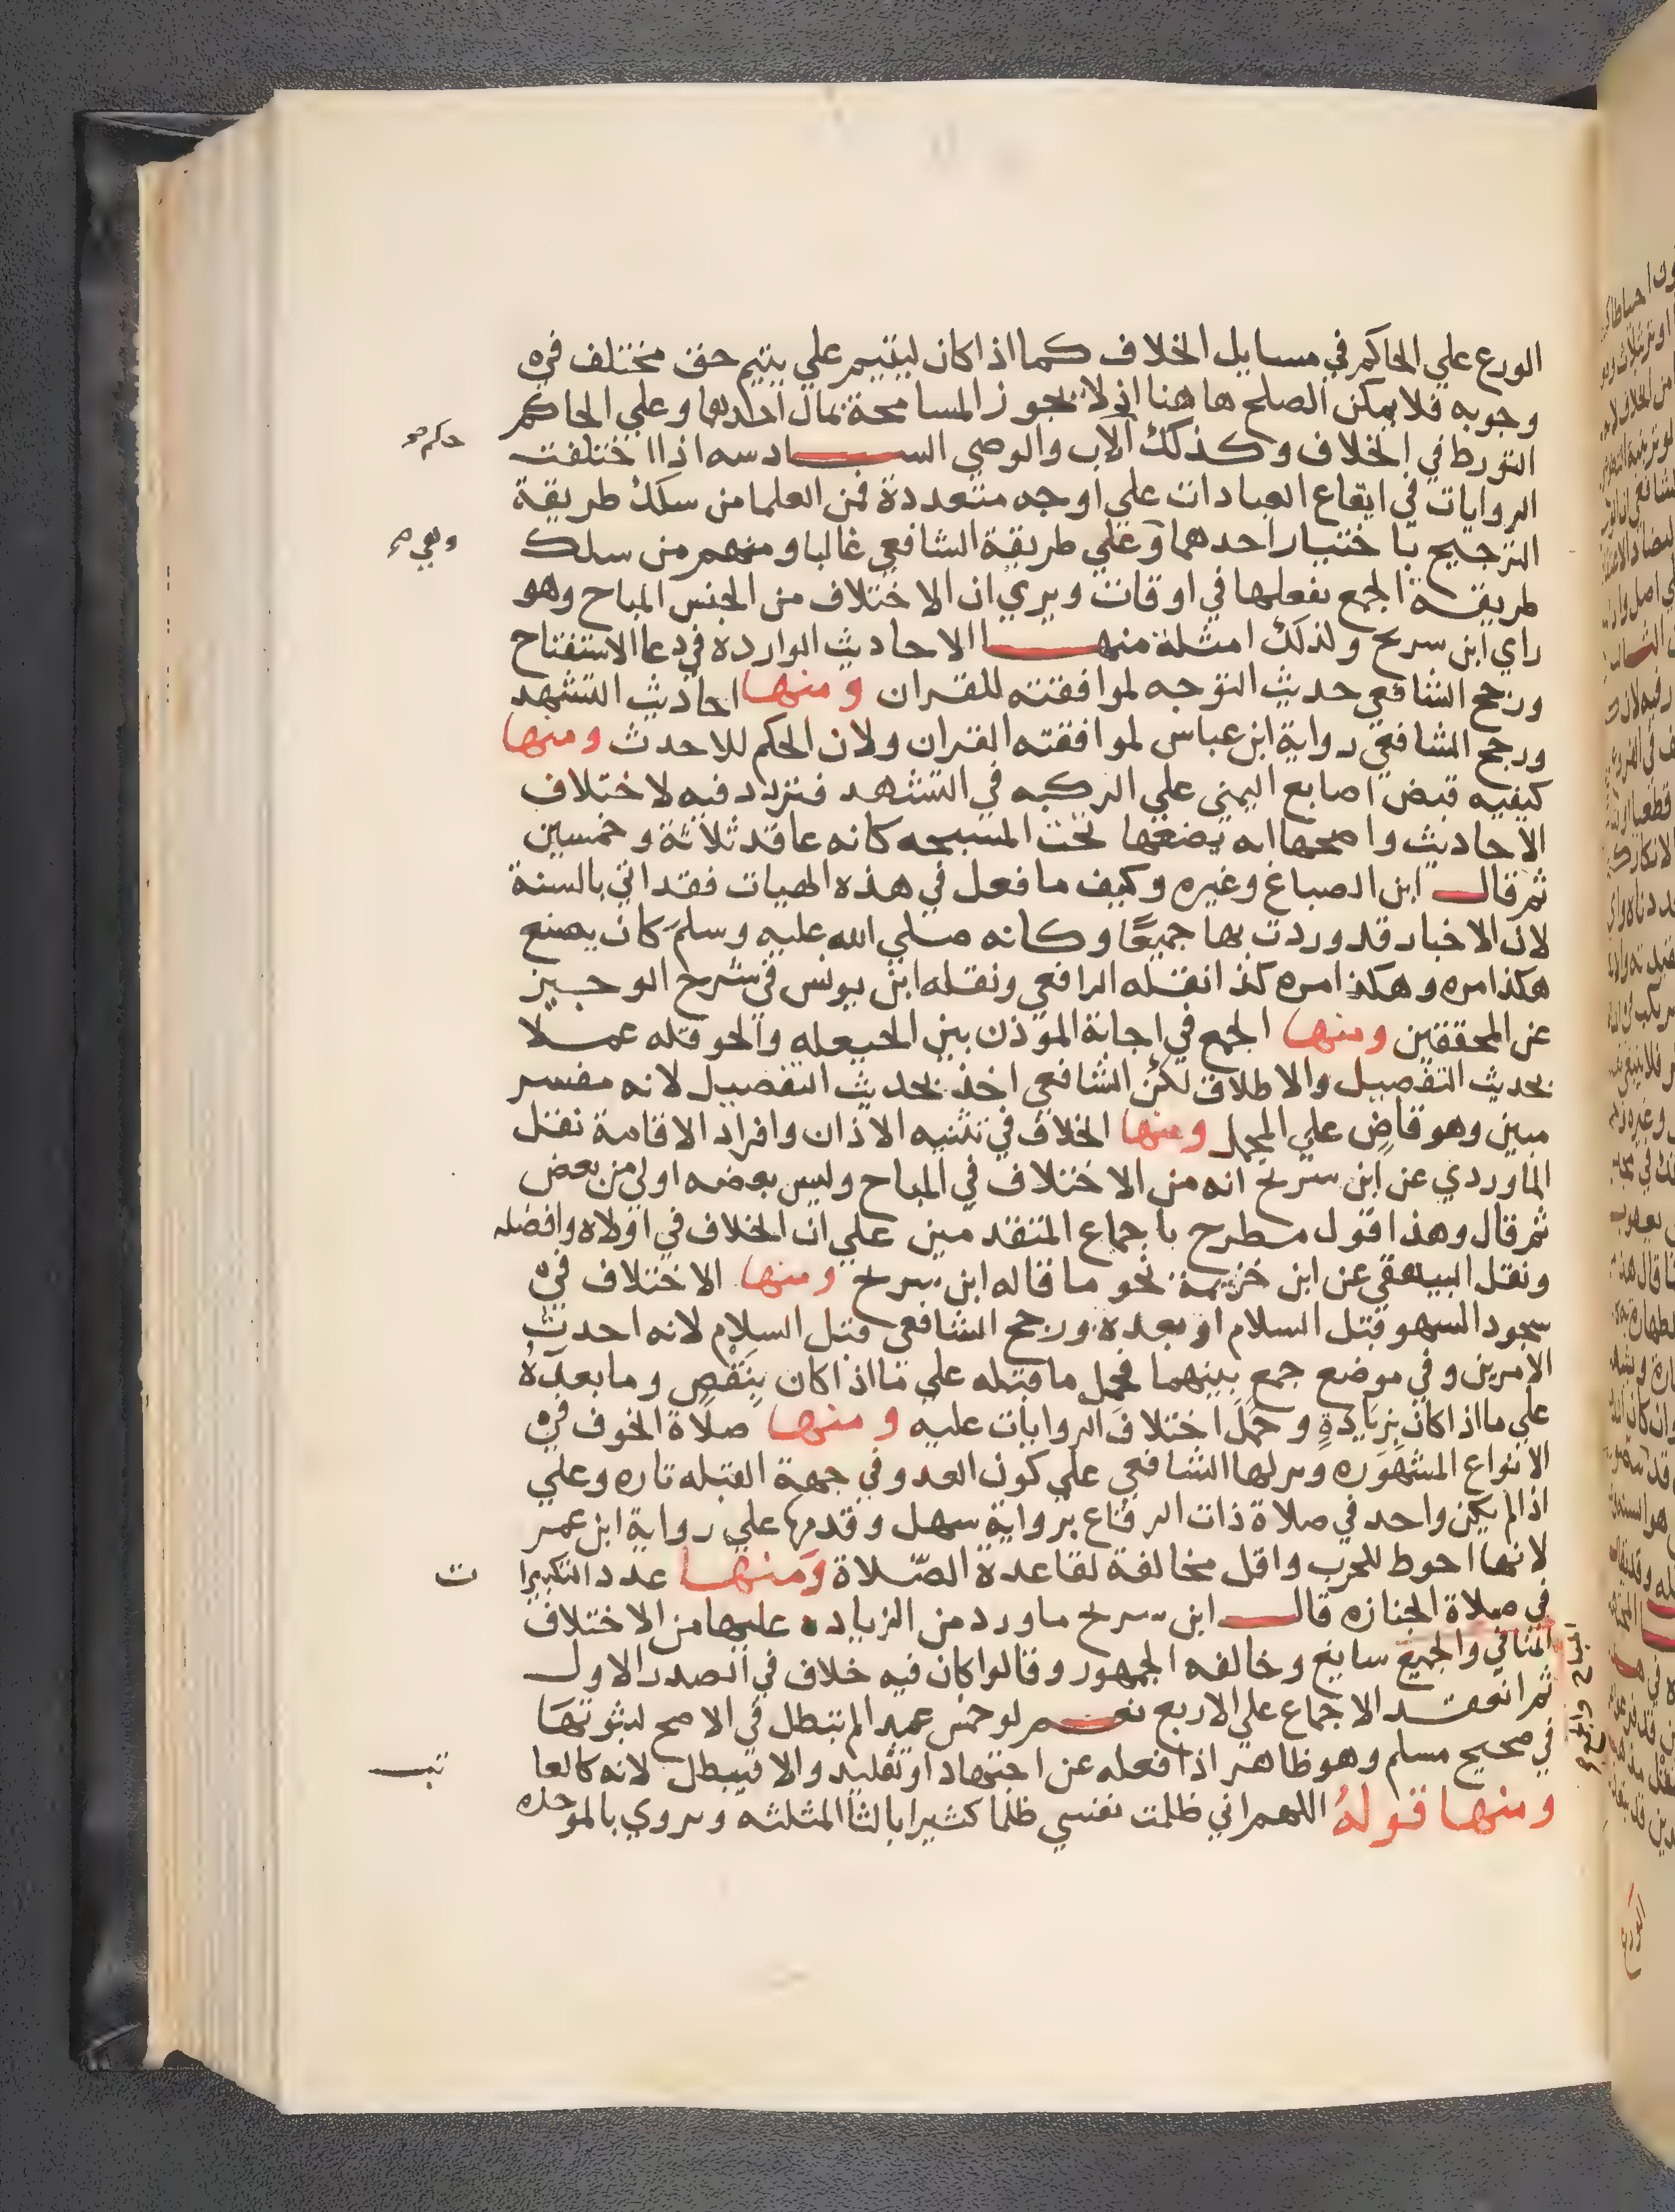 الورع علي الحاكم في مسايل الخلاف كما اذا كان ليتيم علي يتيم حق مختلف في
وجوبه فلا يمكن الصلح هاهنا اذ لا يجوز المسامحة بمال احدهما وعلي الحاكم
التورط في الخلاف وكذلك الاب والوصي السادسه اذا اختلفت
الروايات في ايقاع العبادات علي اوجه متعددة فمن العلما من سلك طريقة
الترجيح باختيار احدهما وعلي طريقة الشافعي غالبا ومنهم من سلك
طريقة الجمع بفعلها في اوقات ويري ان الاختلاف من الجنس المباح وهو
راي ابن سريج ولذلك امثلة منها الاحاديث الوارده في دعا الاستفتاح
ورجح الشافعي حديث التوجه لموافقته للقران ومنها احاديث التشهد
ورجح الشافعي رواية ابن عباس لموافقته القران ولان الحكم للاحدث ومنها
كيفيه قبض اصابع اليمني علي الركبه في التشهد فتردد فيه لاختلاف
الاحاديث واصحها انه يضعها تحت المسبحه كانه عاقد ثلاثة وخمسين
ثم قال ابن الصباغ وغيره وكيف ما فعل في هذه الهيات فقد اتي بالسنة
لان الاخبار قد وردت بها جميعًا وكانه صلي الله عليه وسلم كان يصنع
هكذا مره وهكذا مره كذا نقله الرافعي ونقله ابن يونس في شرح الوجيز
عن المحققين ومنها الجمع في اجابة الموذن بين الحيعله والحوقله عملا
بحديث التفصيل والاطلاق لكن الشافعي اخذ بحديث التفصيل لانه مفسر
مبين وهو قاضٍ علي المجمل ومنها الخلاف في تثنيه الاذان وافراد الاقامة نقل
الماوردي عن ابن سريج انه من الاختلاف في المباح وليس بعضه اولي من بعض
ثم قال وهذا قول مطرح باجماع المتقدمين علي ان الخلاف في اولاه وافضله
ونقل البيهقي عن ابن خزيمة نحو ما قاله ابن سريج ومنها الاختلاف في
سجود السهو قبل السلام او بعده ورجح الشافعي قبل السلام لانه احدث
الامرين وفي موضع جمع بينهما فحمل ما قبله علي ما اذا كان بِنَقْصٍ وما بعدهُ
علي ما اذا كان بزيادةٍ وحمل اختلاف الروايات عليه ومنها صلاة الخوف في
الانواع المشهوره ونزلها الشافعي علي كون العدو في جهة القبله تاره وعلي
اذا لم يكن واحد في صلاة ذات الرقاع برواية سهل وقدمها علي رواية ابن عمر
لانها احوط للحرب واقل مخالفة لقاعدة الصّلاة ومنها عدد التكبيرا
في صلاة الجنازه قال ابن سريج ما ورد من الزياده عليها من الاختلاف
المنافي والجميع سايغ وخالفه الجمهور وقالوا كان فيه خلاف في الصدر الاول
ثم انعقد الاجماع علي الاربع نعم لو خمس عمدا لم تبطل في الاصح لثبوتها
في صحيح مسلم وهو ظاهر اذا فعله عن اجتهاد او تقليد والا فيبطل لانه كالعا
ومنها قولهُ اللهم اني ظلمت نفسي ظلما كثيرا بالثا المثلثه ويروي بالموحده
حكم صح
وهي صح
ت
المباح والجميع